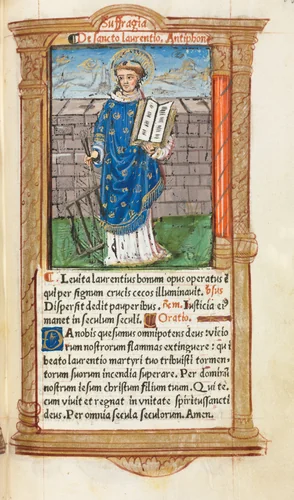 Suffragia
¶ De sancto laurentio. Antiphona
¶ Levita laurentius bonum opus operatus ē
qui per signum crucis cecos illuminavit. v̄sus
Dispersit dedit pauperibus. R̄em. Justicia ei⁹
manet in seculum seculi. ¶ Oratio.
DA nobis quesumus omnipotens deus: vicio
rum nostrorum flammas extinguere: qui
beato laurentio martyri tuo tribuisti tormen
torum suorum incendia superare. Per dominū
nostrum iesum christum filium tuum. Qui te
cum vivit et regnat in unitate spiritussancti
deus. Per omnia secula seculorum. Amen.